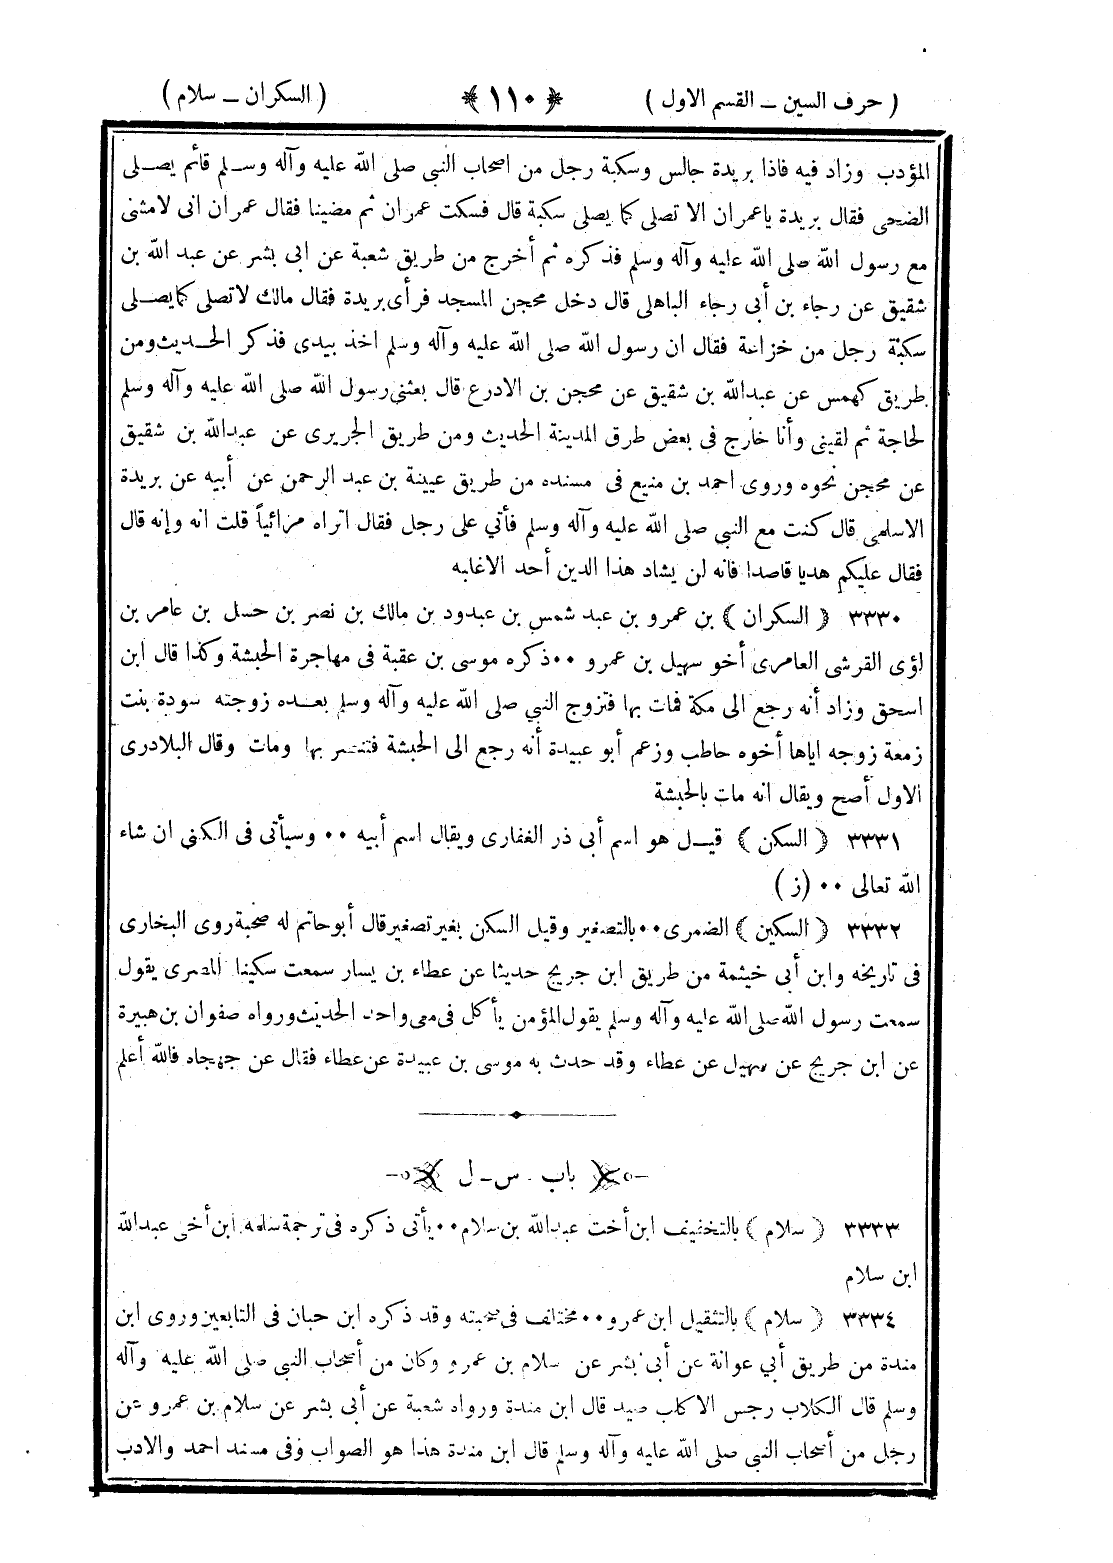 ( حرف السين ــ القسم الاول ) ﴿ ١١٠ ﴾ ( السكران ــ سلام )
المؤدب وزاد فيه فاذا بريدة جالس وسكبة رجل من اصحاب النبي صلى الله عليه وآله وسلم قائم يصلى
الضحى فقال بريدة ياعمران الا تصلى كما يصلى سكبة قال فسكت عمران ثم مضينا فقال عمران انى لامشى
مع رسول الله صلى الله عليه وآله وسلم فذكره ثم أخرج من طريق شعبة عن ابى بشر عن عبد الله بن
شقيق عن رجاء بن أبى رجاء الباهلى قال دخل محجن المسجد فرأى بريدة فقال مالك لاتصلى كما يصلى
سكبة رجل من خزاعة فقال ان رسول الله صلى الله عليه وآله وسلم اخذ بيدى فذكر الحديث ومن
طريق كهمس عن عبدالله بن شقيق عن محجن بن الادرع قال بعثنى رسول الله صلى الله عليه وآله وسلم
لحاجة ثم لقينى وأنا خارج فى بعض طرق المدينة الحديث ومن طريق الجريرى عن عبدالله بن شقيق
عن محجن نحوه وروى احمد بن منيع فى مسنده من طريق عيينة بن عبد الرحمن عن أبيه عن بريدة
الاسلمى قال كنت مع النبى صلى الله عليه وآله وسلم فأتي على رجل فقال اتراه مرائياً قلت انه وإنه قال
فقال عليكم هديا قاصدا فانه لن يشاد هذا الدين أحد الاغلبه
٣٣٣٠ ﴿ السكران ﴾ بن عمرو بن عبد شمس بن عبدود بن مالك بن نصر بن حسل بن عامر بن
لؤى القرشى العامرى أخو سهيل بن عمرو ٠٠ ذكره موسى بن عقبة فى مهاجرة الحبشة وكذا قال ابن
اسحق وزاد أنه رجع الى مكة فمات بها فتزوج النبي صلى الله عليه وآله وسلم بعده زوجته سودة بنت
زمعة زوجه اياها أخوه حاطب وزعم أبو عبيدة أنه رجع الى الحبشة فتنصر بها ومات وقال البلادرى
الاول أصح ويقال انه مات بالحبشة
٣٣٣١ ﴿ السكن ﴾ قيل هو اسم أبي ذر الغفارى ويقال اسم أبيه ٠٠ وسيأتى فى الكنى ان شاء
الله تعالى ٠٠ ( ز )
٣٣٣٢ ﴿ السكين ﴾ الضمرى ٠٠ بالتصغير وقيل السكن بغير تصغير قال أبو حاتم له صحبة روى البخارى
فى تاريخه وابن أبى خيثمة من طريق ابن جريج حديثا عن عطاء بن يسار سمعت سكينا الضمرى يقول
سمعت رسول الله صلى الله عليه وآله وسلم يقول المؤمن يأكل فى معى واحد الحديث ورواه صفوان بن هبيرة
عن ابن جريج عن سهيل عن عطاء وقد حدث به موسى بن عبيدة عن عطاء فقال عن جهجاه فالله أعلم
باب س ـ ل
٣٣٣٣ ﴿ سلام ﴾ بالتخفيف ابن أخت عبدالله بن سلام ٠٠ يأتى ذكره فى ترجمة سلمه ابن أخى عبدالله
ابن سلام
٣٣٣٤ ﴿ سلام ﴾ بالتثقيل ابن عمرو ٠٠ مختلف فى صحبته وقد ذكره ابن حبان فى التابعين وروى ابن
مندة من طريق أبي عوانة عن أبى بشر عن سلام بن عمرو وكان من أصحاب النبى صلى الله عليه وآله
وسلم قال الكلاب رجس الا كلب صيد قال ابن مندة ورواه شعبة عن أبى بشر عن سلام بن عمرو عن
رجل من أصحاب النبى صلى الله عليه وآله وسلم قال ابن مندة هذا هو الصواب وفى مسند احمد والادب